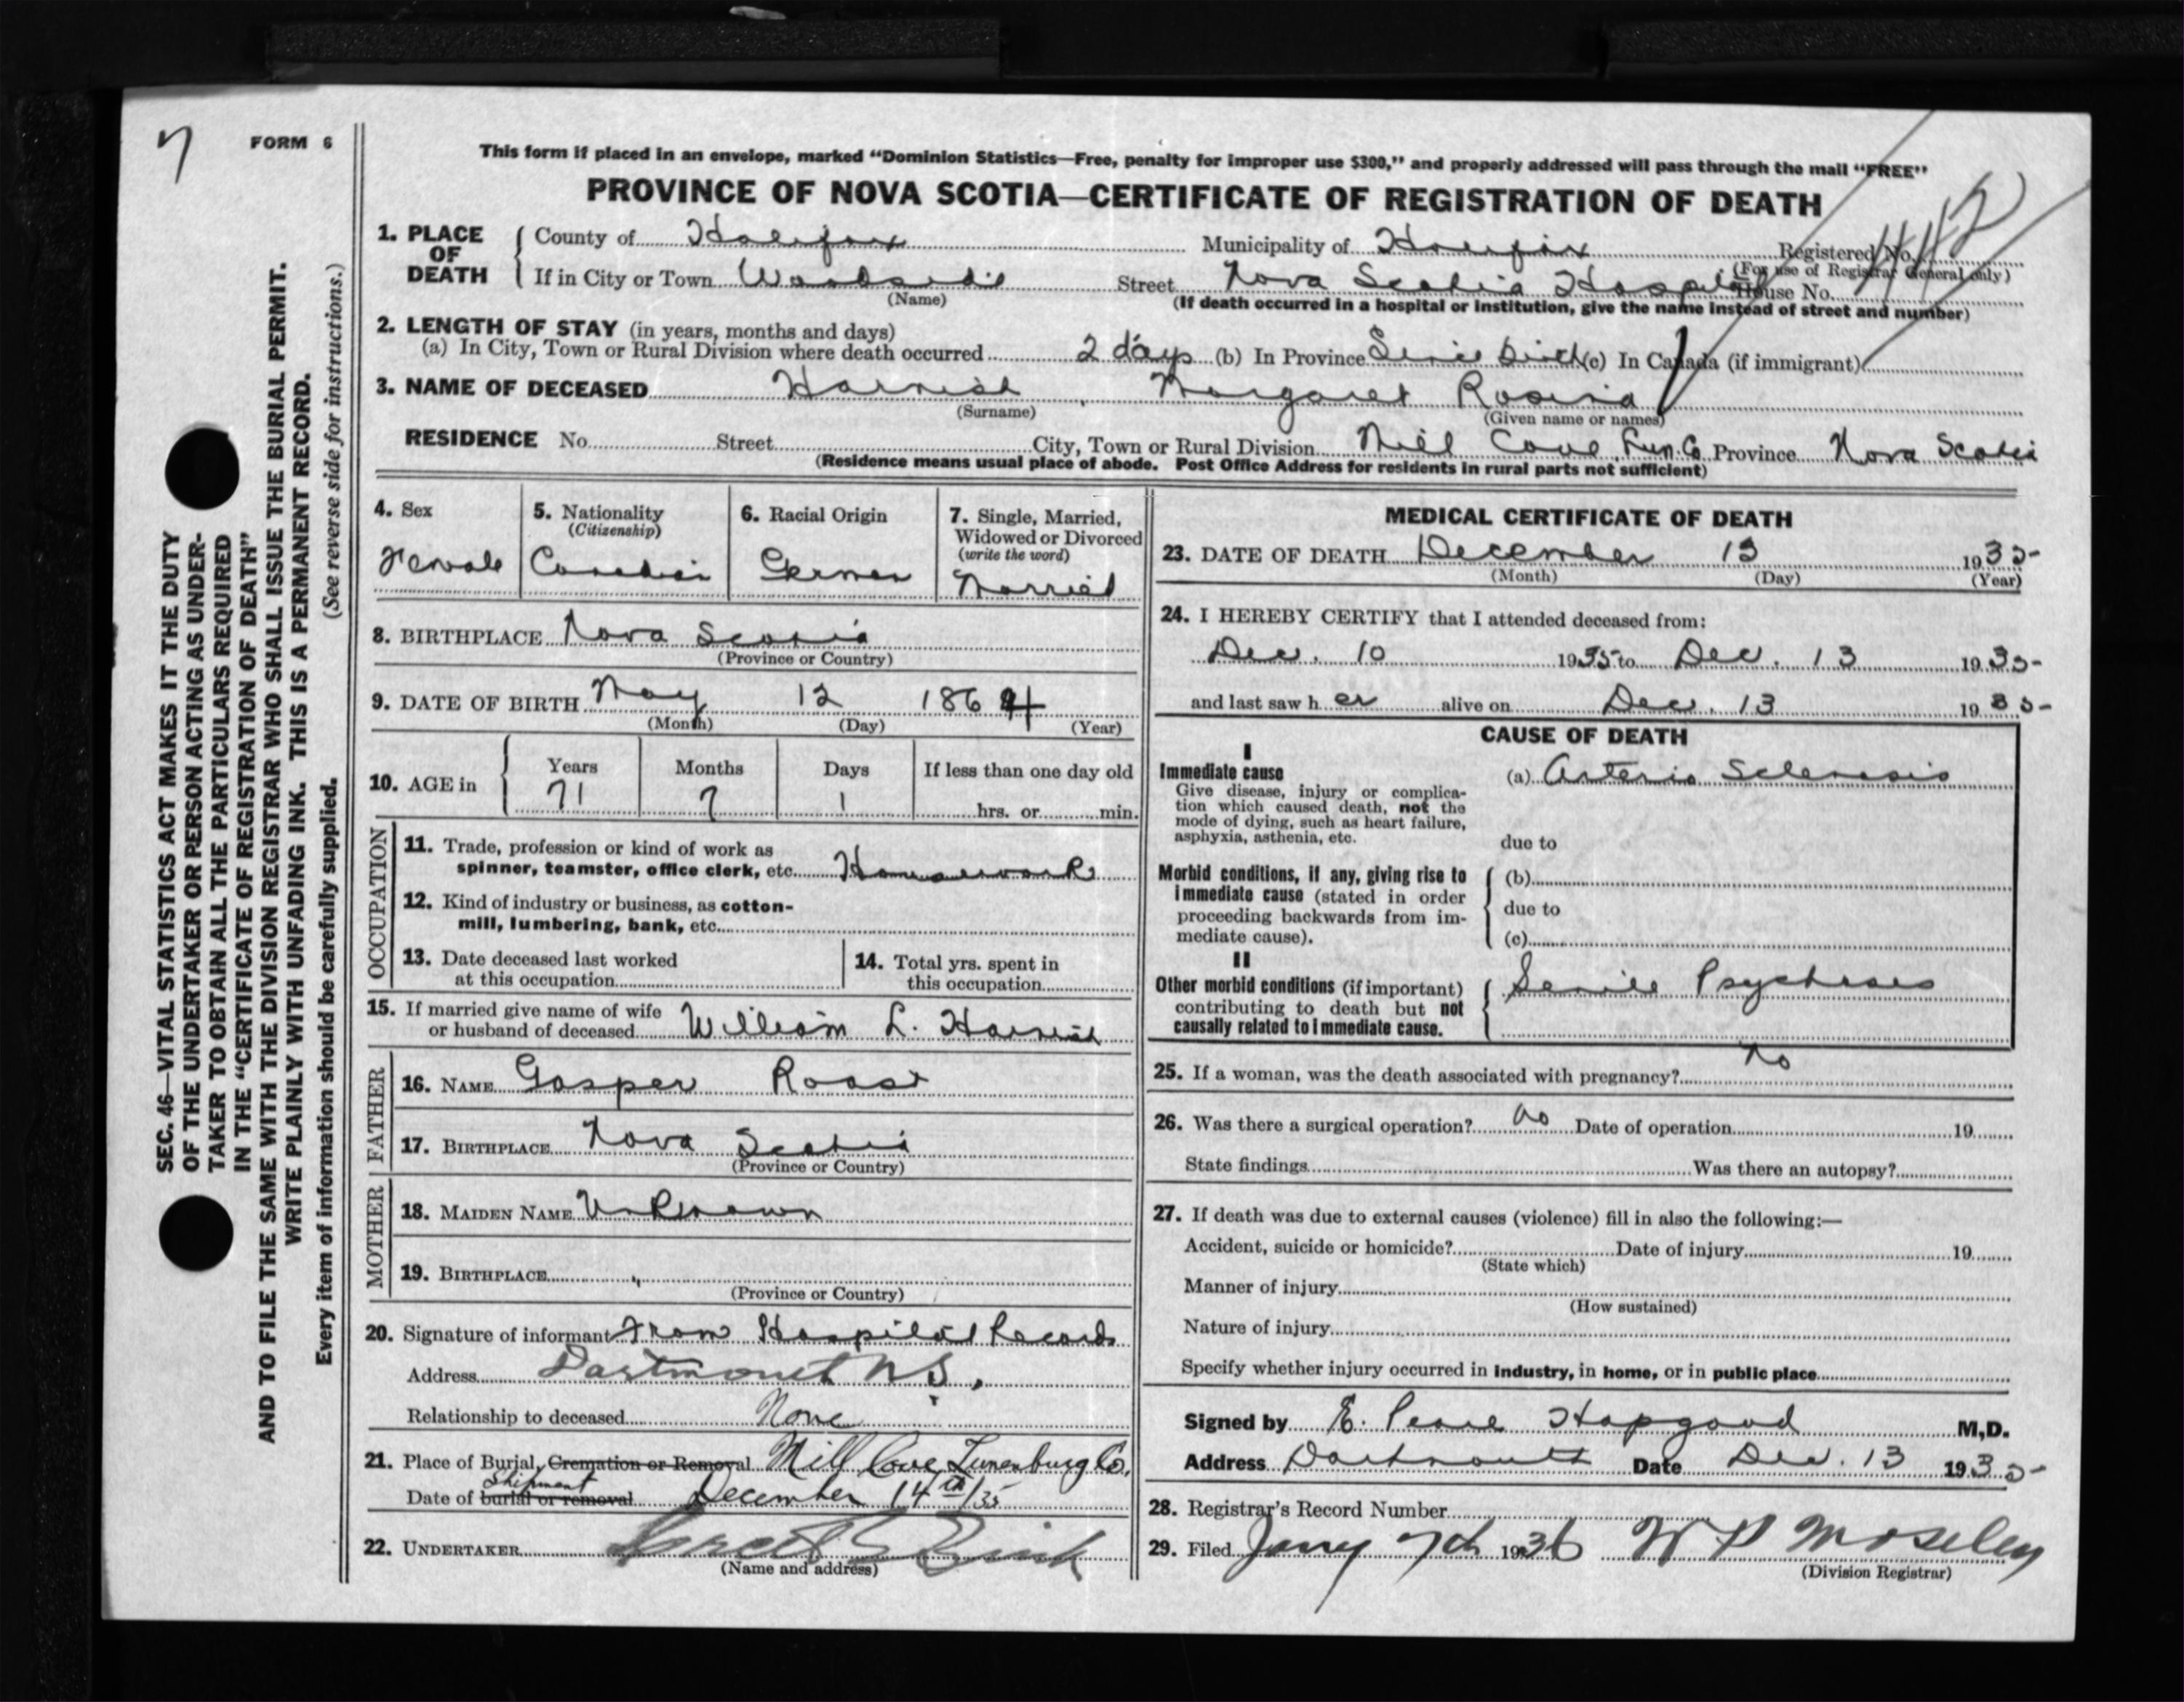 7
FORM 6
This form if placed in an envelope, marked "Dominion Statistics—Free, penalty for improper use $300," and properly addressed will pass through the mail "FREE"
PROVINCE OF NOVA SCOTIA—CERTIFICATE OF REGISTRATION OF DEATH
1. PLACE OF DEATH
County of Halifax Municipality of Halifax Registered No. 442
(For use of Registrar General only)
If in City or Town Woodside Street Nova Scotia Hospital House No.
(Name)
(If death occurred in a hospital or institution, give the name instead of street and number)
2. LENGTH OF STAY (in years, months and days)
(a) In City, Town or Rural Division where death occurred 2 days (b) In Province Since Birth (c) In Canada (if immigrant)
3. NAME OF DECEASED Harnish, Margaret Rosina
(Surname) (Given name or names)
RESIDENCE No. Street City, Town or Rural Division Mill Cove Lun. Co Province Nova Scotia
(Residence means usual place of abode. Post Office Address for residents in rural parts not sufficient)
4. Sex
Female
5. Nationality
(Citizenship)
Canadian
6. Racial Origin
German
7. Single, Married,
Widowed or Divorced
(write the word)
Married
8. BIRTHPLACE Nova Scotia
(Province or Country)
9. DATE OF BIRTH May 12 1864
(Month) (Day) (Year)
10. AGE in
Years Months Days If less than one day old
71 7 1 hrs. or min.
OCCUPATION
11. Trade, profession or kind of work as
spinner, teamster, office clerk, etc. Housework
12. Kind of industry or business, as cotton-
mill, lumbering, bank, etc.
13. Date deceased last worked
at this occupation
14. Total yrs. spent in
this occupation
15. If married give name of wife
or husband of deceased William L. Harnish
FATHER
16. NAME Gasper Roast
17. BIRTHPLACE Nova Scotia
(Province or Country)
MOTHER
18. MAIDEN NAME Unknown
19. BIRTHPLACE "
(Province or Country)
20. Signature of informant From Hospital Records
Address Dartmouth N.S.
Relationship to deceased None
21. Place of Burial, Cremation or Removal Mill Cove, Lunenburg Co.
Shipment
Date of burial or removal December 14th/35
22. UNDERTAKER
(Name and address)
MEDICAL CERTIFICATE OF DEATH
23. DATE OF DEATH December 13 1935
(Month) (Day) (Year)
24. I HEREBY CERTIFY that I attended deceased from:
Dec. 10 1935 to Dec. 13 1935
and last saw her alive on Dec. 13 1935
CAUSE OF DEATH
I
Immediate cause
Give disease, injury or complica-
tion which caused death, not the
mode of dying, such as heart failure,
asphyxia, asthenia, etc.
(a) Arterio Sclerosis
due to
Morbid conditions, if any, giving rise to
immediate cause (stated in order
proceeding backwards from im-
mediate cause).
(b)
due to
(c)
II
Other morbid conditions (if important)
contributing to death but not
causally related to immediate cause.
Senile Psychosis
25. If a woman, was the death associated with pregnancy? No
26. Was there a surgical operation? no Date of operation 19
State findings Was there an autopsy?
27. If death was due to external causes (violence) fill in also the following:—
Accident, suicide or homicide? Date of injury 19
(State which)
Manner of injury
(How sustained)
Nature of injury
Specify whether injury occurred in industry, in home, or in public place
Signed by E. Pearl Hopgood M,D.
Address Dartmouth Date Dec. 13 1935
28. Registrar's Record Number
29. Filed Jany 7th 1936 W P Moseley
(Division Registrar)
SEC. 46—VITAL STATISTICS ACT MAKES IT THE DUTY
OF THE UNDERTAKER OR PERSON ACTING AS UNDER-
TAKER TO OBTAIN ALL THE PARTICULARS REQUIRED
IN THE "CERTIFICATE OF REGISTRATION OF DEATH"
AND TO FILE THE SAME WITH THE DIVISION REGISTRAR WHO SHALL ISSUE THE BURIAL PERMIT.
WRITE PLAINLY WITH UNFADING INK. THIS IS A PERMANENT RECORD.
Every item of information should be carefully supplied. (See reverse side for instructions.)